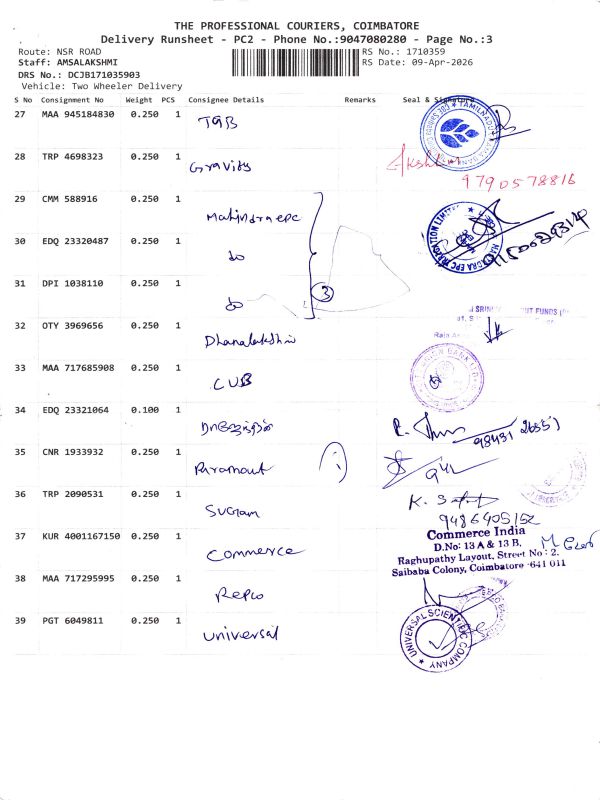 THE PROFESSIONAL COURIERS, COIMBATORE
Delivery Runsheet - PC2 - Phone No.:9047080280 - Page No.:3
Route: NSR ROAD RS No.: 1710359
Staff: AMSALAKSHMI RS Date: 09-Apr-2026
DRS No.: DCJB171035903
Vehicle: Two Wheeler Delivery
S No Consignment No Weight PCS Consignee Details Remarks Seal & Signature
27 MAA 945184830 0.250 1 TGB
28 TRP 4698323 0.250 1 Gravity
9790578816
29 CMM 588916 0.250 1 Mahindra epc
30 EDQ 23320487 0.250 1 do
31 DPI 1038110 0.250 1 do 3
32 OTY 3969656 0.250 1 Dhanalakshmi
33 MAA 717685908 0.250 1 CUB
34 EDQ 23321064 0.100 1
35 CNR 1933932 0.250 1 Paramout
36 TRP 2090531 0.250 1 Sugam
9486405152
37 KUR 4001167150 0.250 1 Commerce
Commerce India
D.No: 13 A & 13 B,
Raghupathy Layout, Street No : 2,
Saibaba Colony, Coimbatore - 641 011
38 MAA 717295995 0.250 1 Repco
39 PGT 6049811 0.250 1 Universal
UNIVERSAL SCIENTIFIC COMPANY